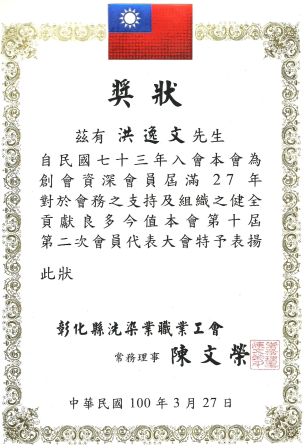 獎狀
茲有 洪逸文 先生
自民國七十三年入會本會為
創會資深會員屆滿27年
對於會務之支持及組織之健全
貢獻良多今值本會第十屆
第二次會員代表大會特予表揚
此狀
彰化縣洗染業職業工會
常務理事 陳文榮
中華民國100年3月27日